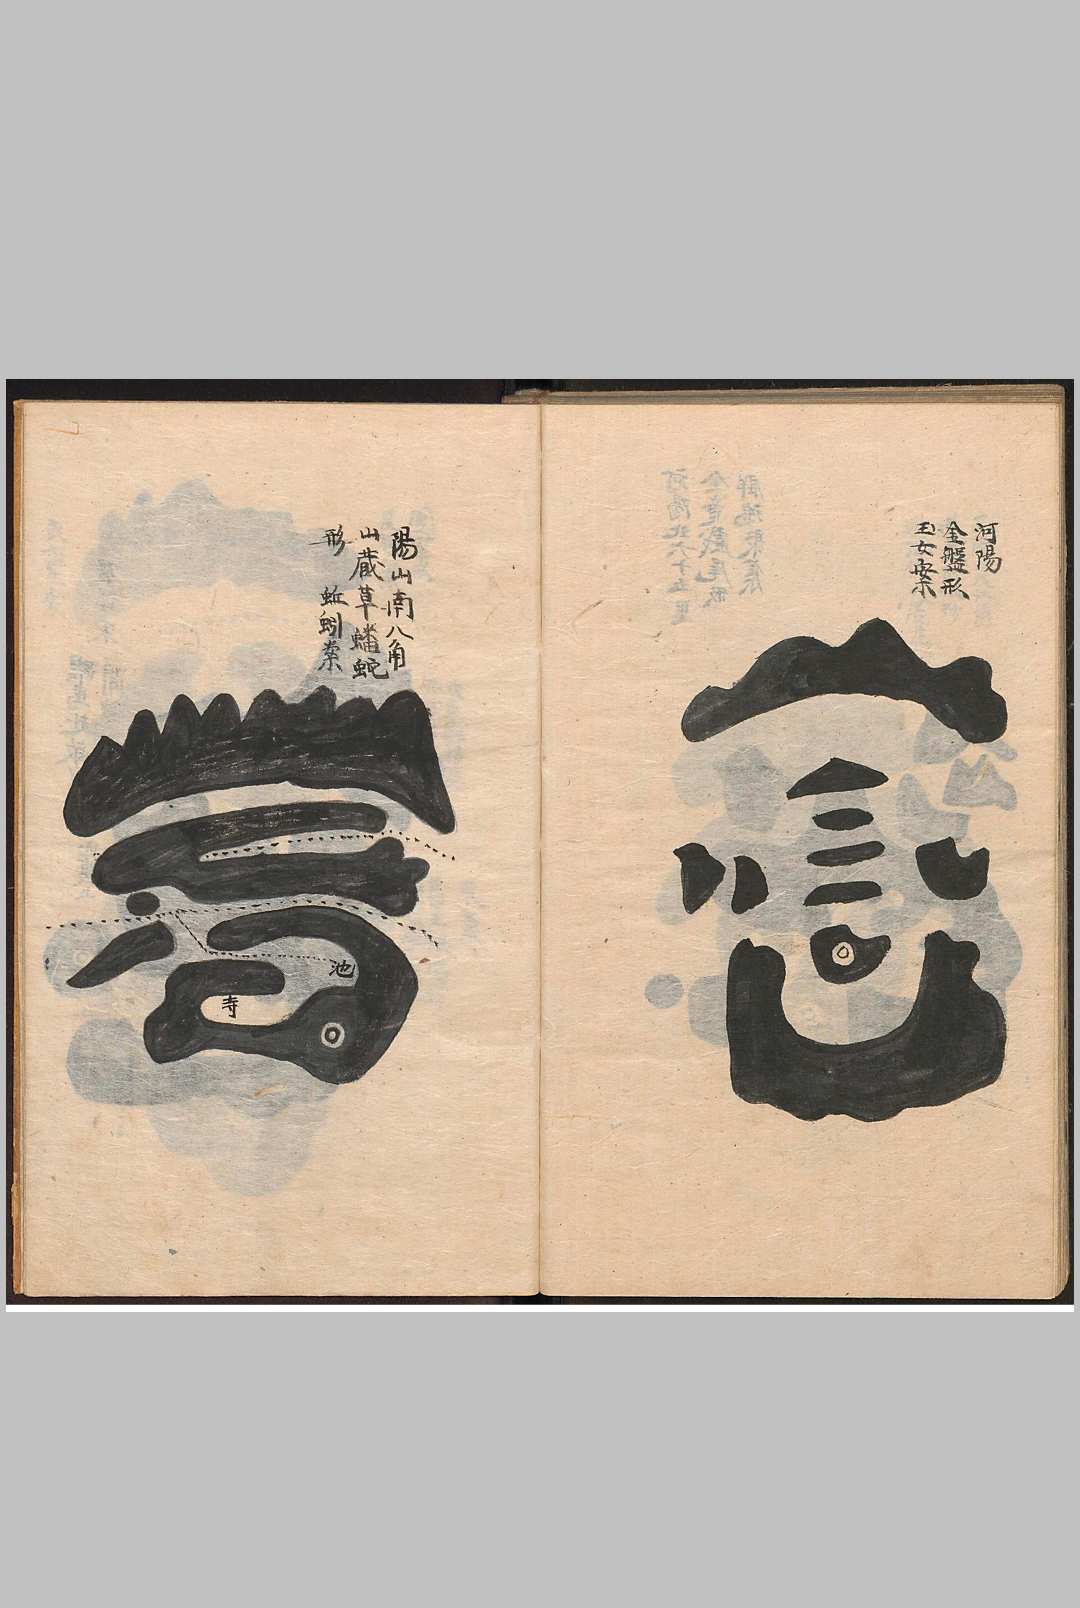 河陽
金盤形
玉女案
陽山南八角
山藏草蟠蛇
形 蚯蚓案
池
寺